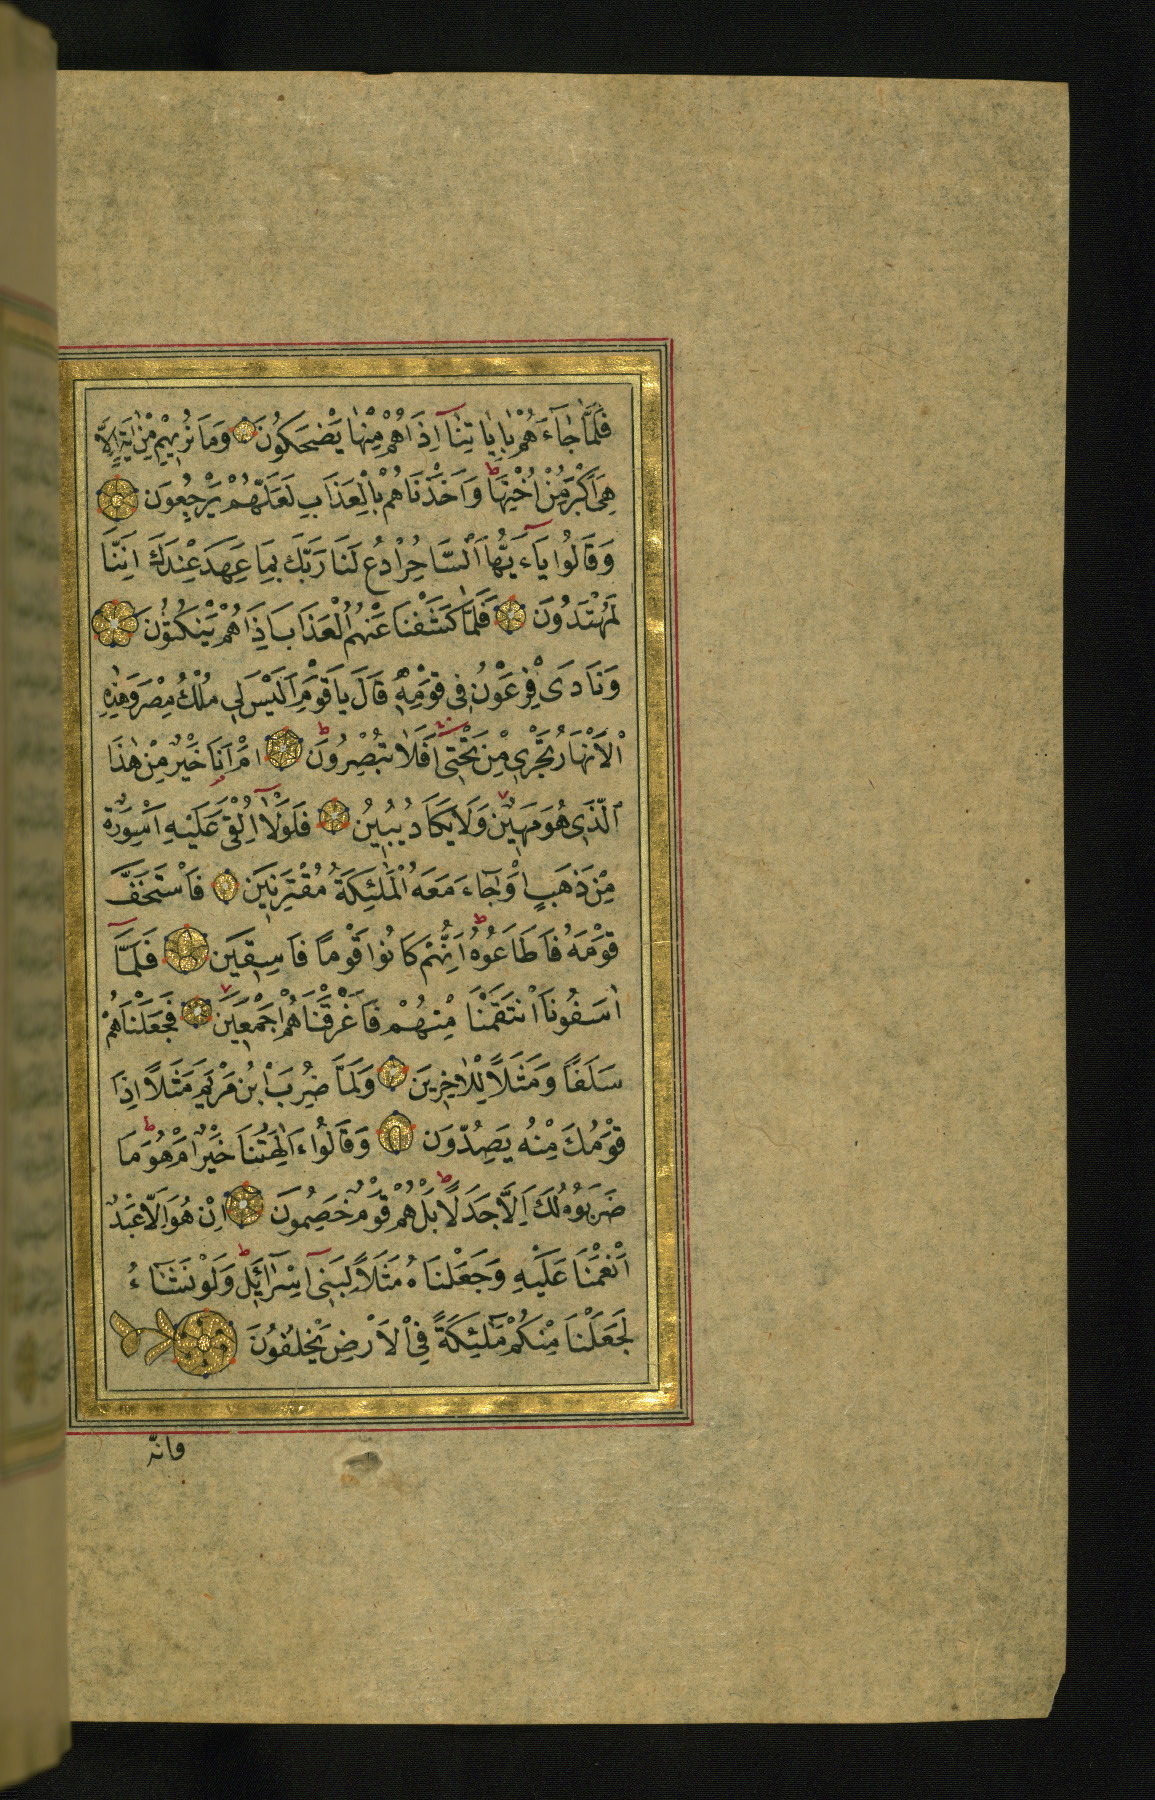 فَلَمَّا جَاءَهُمْ بِاٰيَاتِنَا اِذَا هُمْ مِنْهَا يَضْحَكُونَ وَمَا نُرِيهِمْ مِنْ اٰيَةٍ اِلَّا
هِىَ اَكْبَرُ مِنْ اُخْتِهَا وَاَخَذْنَاهُمْ بِالْعَذَابِ لَعَلَّهُمْ يَرْجِعُونَ
وَقَالُوا يَاءَيُّهَا السَّاحِرُ ادْعُ لَنَا رَبَّكَ بِمَا عَهِدَ عِنْدَكَ اِنَّنَا
لَمُهْتَدُونَ فَلَمَّا كَشَفْنَا عَنْهُمُ الْعَذَابَ اِذَا هُمْ يَنْكُثُونَ
وَنَادَى فِرْعَوْنُ فِى قَوْمِهِ قَالَ يَا قَوْمِ اَلَيْسَ لِى مُلْكُ مِصْرَ وَهٰذِهِ
الْاَنْهَارُ تَجْرِى مِنْ تَحْتِى اَفَلَا تُبْصِرُونَ اَمْ اَنَا خَيْرٌ مِنْ هٰذَا
الَّذِى هُوَ مَهِينٌ وَلَا يَكَادُ يُبِينُ فَلَوْلَا اُلْقِىَ عَلَيْهِ اَسْوِرَةٌ
مِنْ ذَهَبٍ اَوْ جَاءَ مَعَهُ الْمَلٰئِكَةُ مُقْتَرِنِينَ فَاسْتَخَفَّ
قَوْمَهُ فَاَطَاعُوهُ اِنَّهُمْ كَانُوا قَوْمًا فَاسِقِينَ فَلَمَّا
اٰسَفُونَا انْتَقَمْنَا مِنْهُمْ فَاَغْرَقْنَاهُمْ اَجْمَعِينَ فَجَعَلْنَاهُمْ
سَلَفًا وَمَثَلًا لِلْاٰخِرِينَ وَلَمَّا ضُرِبَ ابْنُ مَرْيَمَ مَثَلًا اِذَا
قَوْمُكَ مِنْهُ يَصِدُّونَ وَقَالُوا ءَاٰلِهَتُنَا خَيْرٌ اَمْ هُوَ مَا
ضَرَبُوهُ لَكَ اِلَّا جَدَلًا بَلْ هُمْ قَوْمٌ خَصِمُونَ اِنْ هُوَ اِلَّا عَبْدٌ
اَنْعَمْنَا عَلَيْهِ وَجَعَلْنَاهُ مَثَلًا لِبَنِى اِسْرَائِلَ وَلَوْ نَشَاءُ
لَجَعَلْنَا مِنْكُمْ مَلٰئِكَةً فِى الْاَرْضِ يَخْلُفُونَ
وانّه